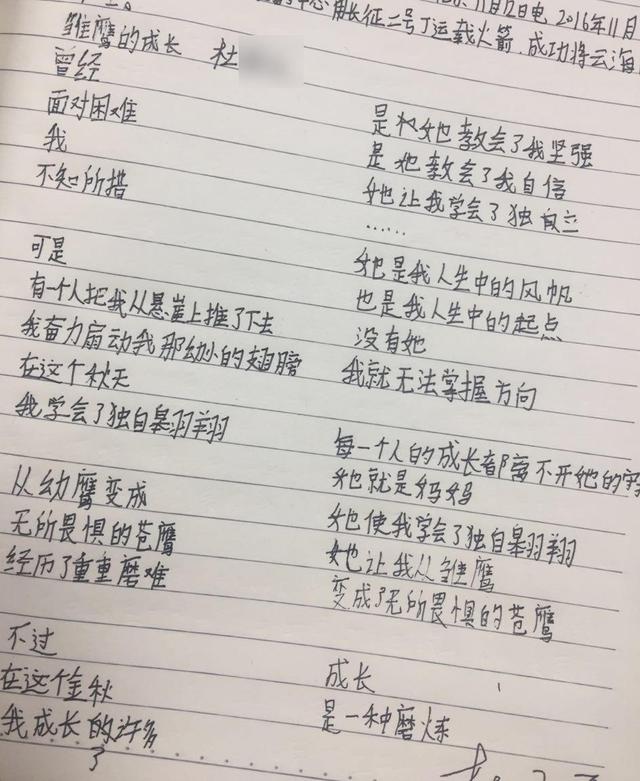 11月12日电, 2016年11月
用长征二号丁运载火箭,成功将云海
雏鹰的成长 杜
曾经
面对困难
我
不知所措
可是
有一个人把我从悬崖上推了下去
我奋力扇动我那幼小的翅膀
在这个秋天
我学会了独自翱翔
从幼鹰变成
无所畏惧的苍鹰
经历了重重磨难
不过
在这个金秋
我成长的许多
了
是她教会了我坚强
是她教会了我自信
她让我学会了独立
……
她是我人生中的风帆
也是我人生中的起点
没有她
我就无法掌握方向
每一个人的成长都离不开她的
她就是妈妈
她使我学会了独自翱翔
她让我从雏鹰
变成了无所畏惧的苍鹰
成长
是一种磨炼